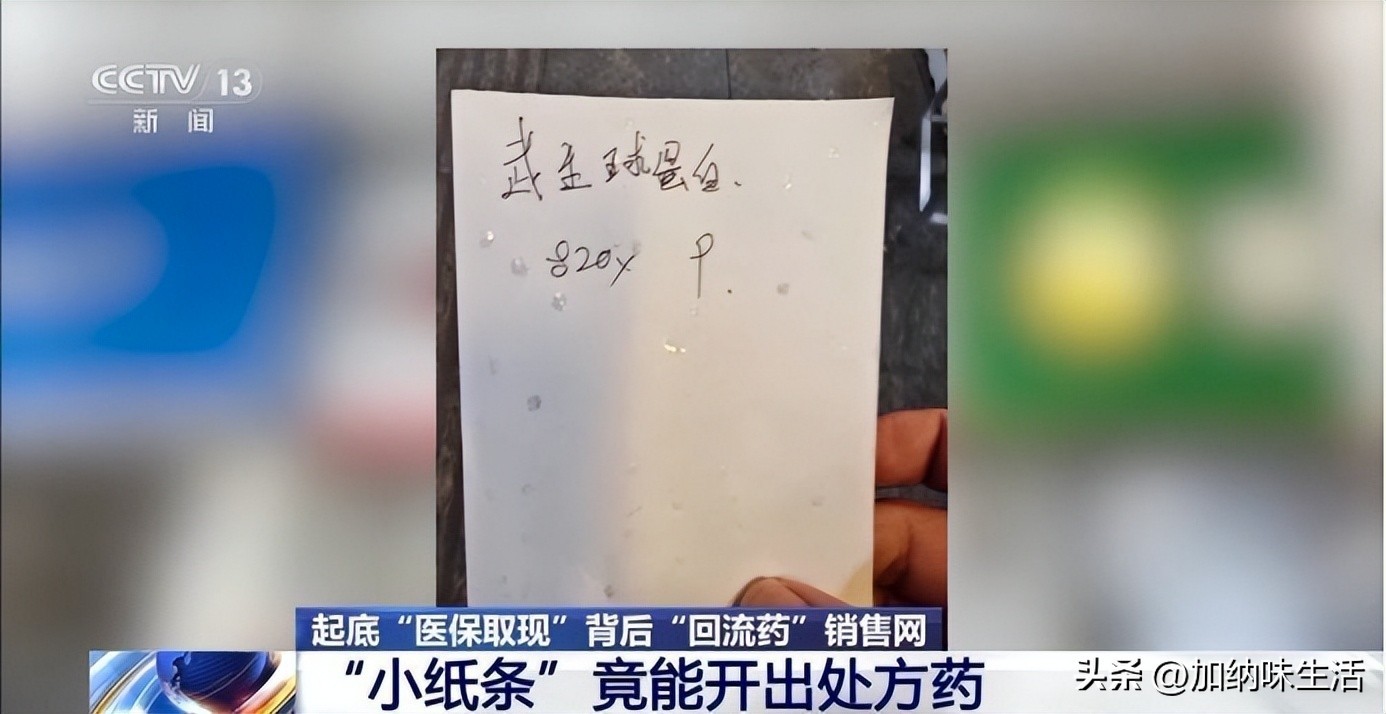 CCTV 13
新闻
武生球蛋白.
820×
起底“医保取现”背后“回流药”销售网
“小纸条”竟能开出处方药
头条 @加纳味生活